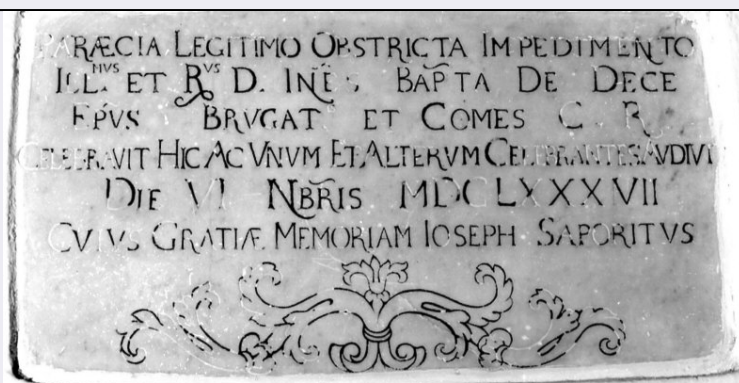 PARÆCIA LEGITIMO OBSTRICTA IMPEDIMENTO
ILL.MVS ET RVS D. INES BAPTA DE DECE
EPVS BRVGAT ET COMES C R
CELEBRAVIT HIC AC VNVM ET ALTERVM CELEBRANTES AVDIVIT
DIE VI NBRIS MDCLXXXVII
CVIVS GRATIÆ MEMORIAM IOSEPH SAPORITVS